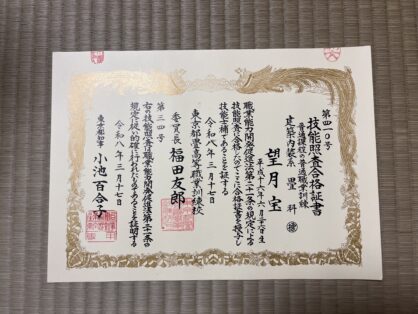 第四一〇号
技能照査合格証書
普通課程の普通職業訓練
建築内装系 畳科
望月宝
平成十六年六月十六日生
職業能力開発促進法第二十一条の規定による
技能照査に合格したのでここに合格証書を授与し
技能士補であることを証する
令和八年三月十七日
東京都畳高等職業訓練校
委員長 福田友郎
第三四号
右の技能照査は職業能力開発促進法第二十一条の
規定に従い的確に行われたものであることを証明する
令和八年三月十七日
東京都知事 小池百合子